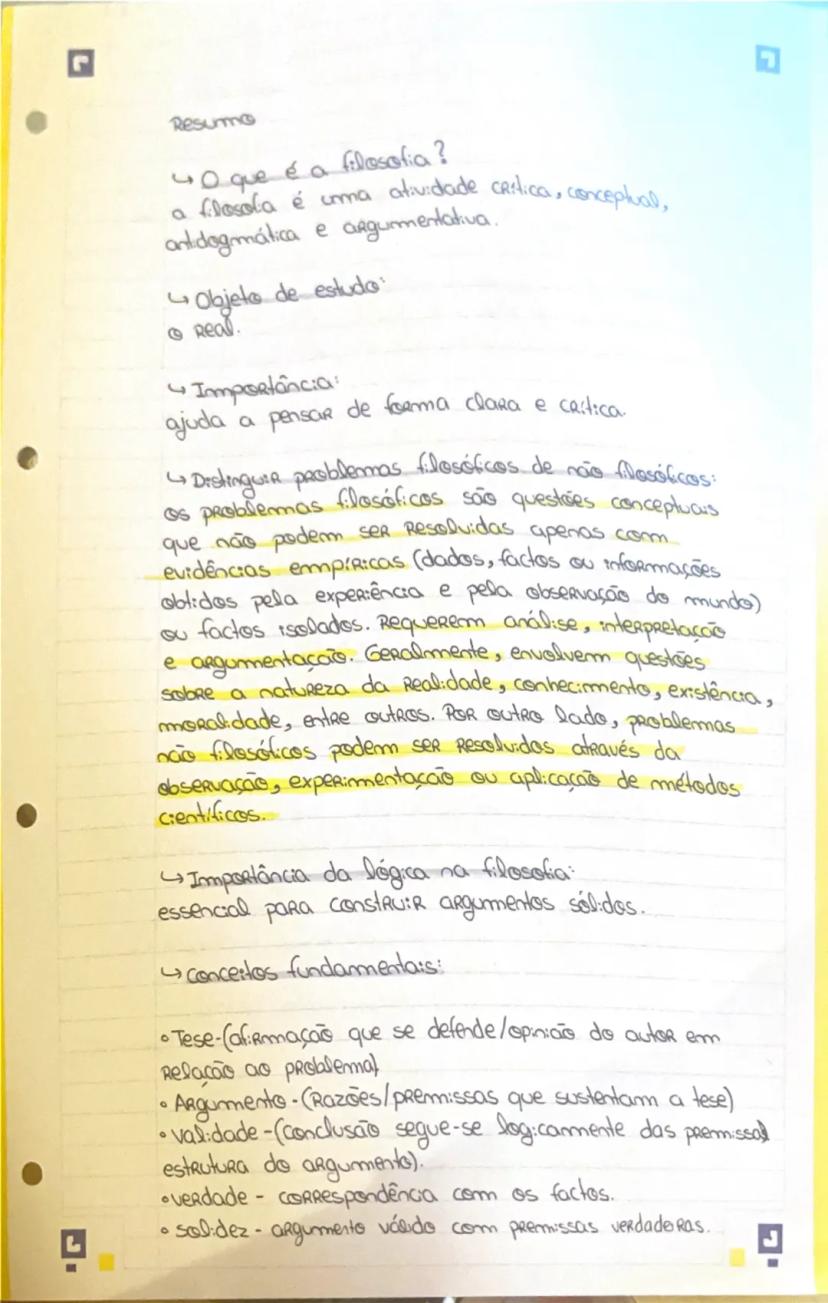 Resumo
↳ O que é a filosofia?
a filosofia é uma atividade crítica, conceptual,
antidogmática e argumentativa.
↳ Objeto de estudo:
o Real.
↳ Importância:
ajuda a pensar de forma clara e crítica.
↳ Distinguir problemas filosóficos de não filosóficos:
os problemas filosóficos são questões conceptuais
que não podem ser resolvidas apenas com
evidências empíricas (dados, factos ou informações
obtidos pela experiência e pela observação do mundo)
ou factos isolados. Requerem análise, interpretação
e argumentação. Geralmente, envolvem questões
sobre a natureza da realidade, conhecimento, existência,
moralidade, entre outros. Por outro lado, problemas
não filosóficos podem ser resolvidos através da
observação, experimentação ou aplicação de métodos
científicos.
↳ Importância da lógica na filosofia:
essencial para construir argumentos sólidos.
↳ conceitos fundamentais:
• Tese-(afirmação que se defende/opinião do autor em
relação ao problema)
• Argumento-(Razões/premissas que sustentam a tese)
• validade-(conclusão segue-se logicamente das premissas/
estrutura do argumento).
• verdade - correspondência com os factos.
• solidez - argumento válido com premissas verdadeiras.